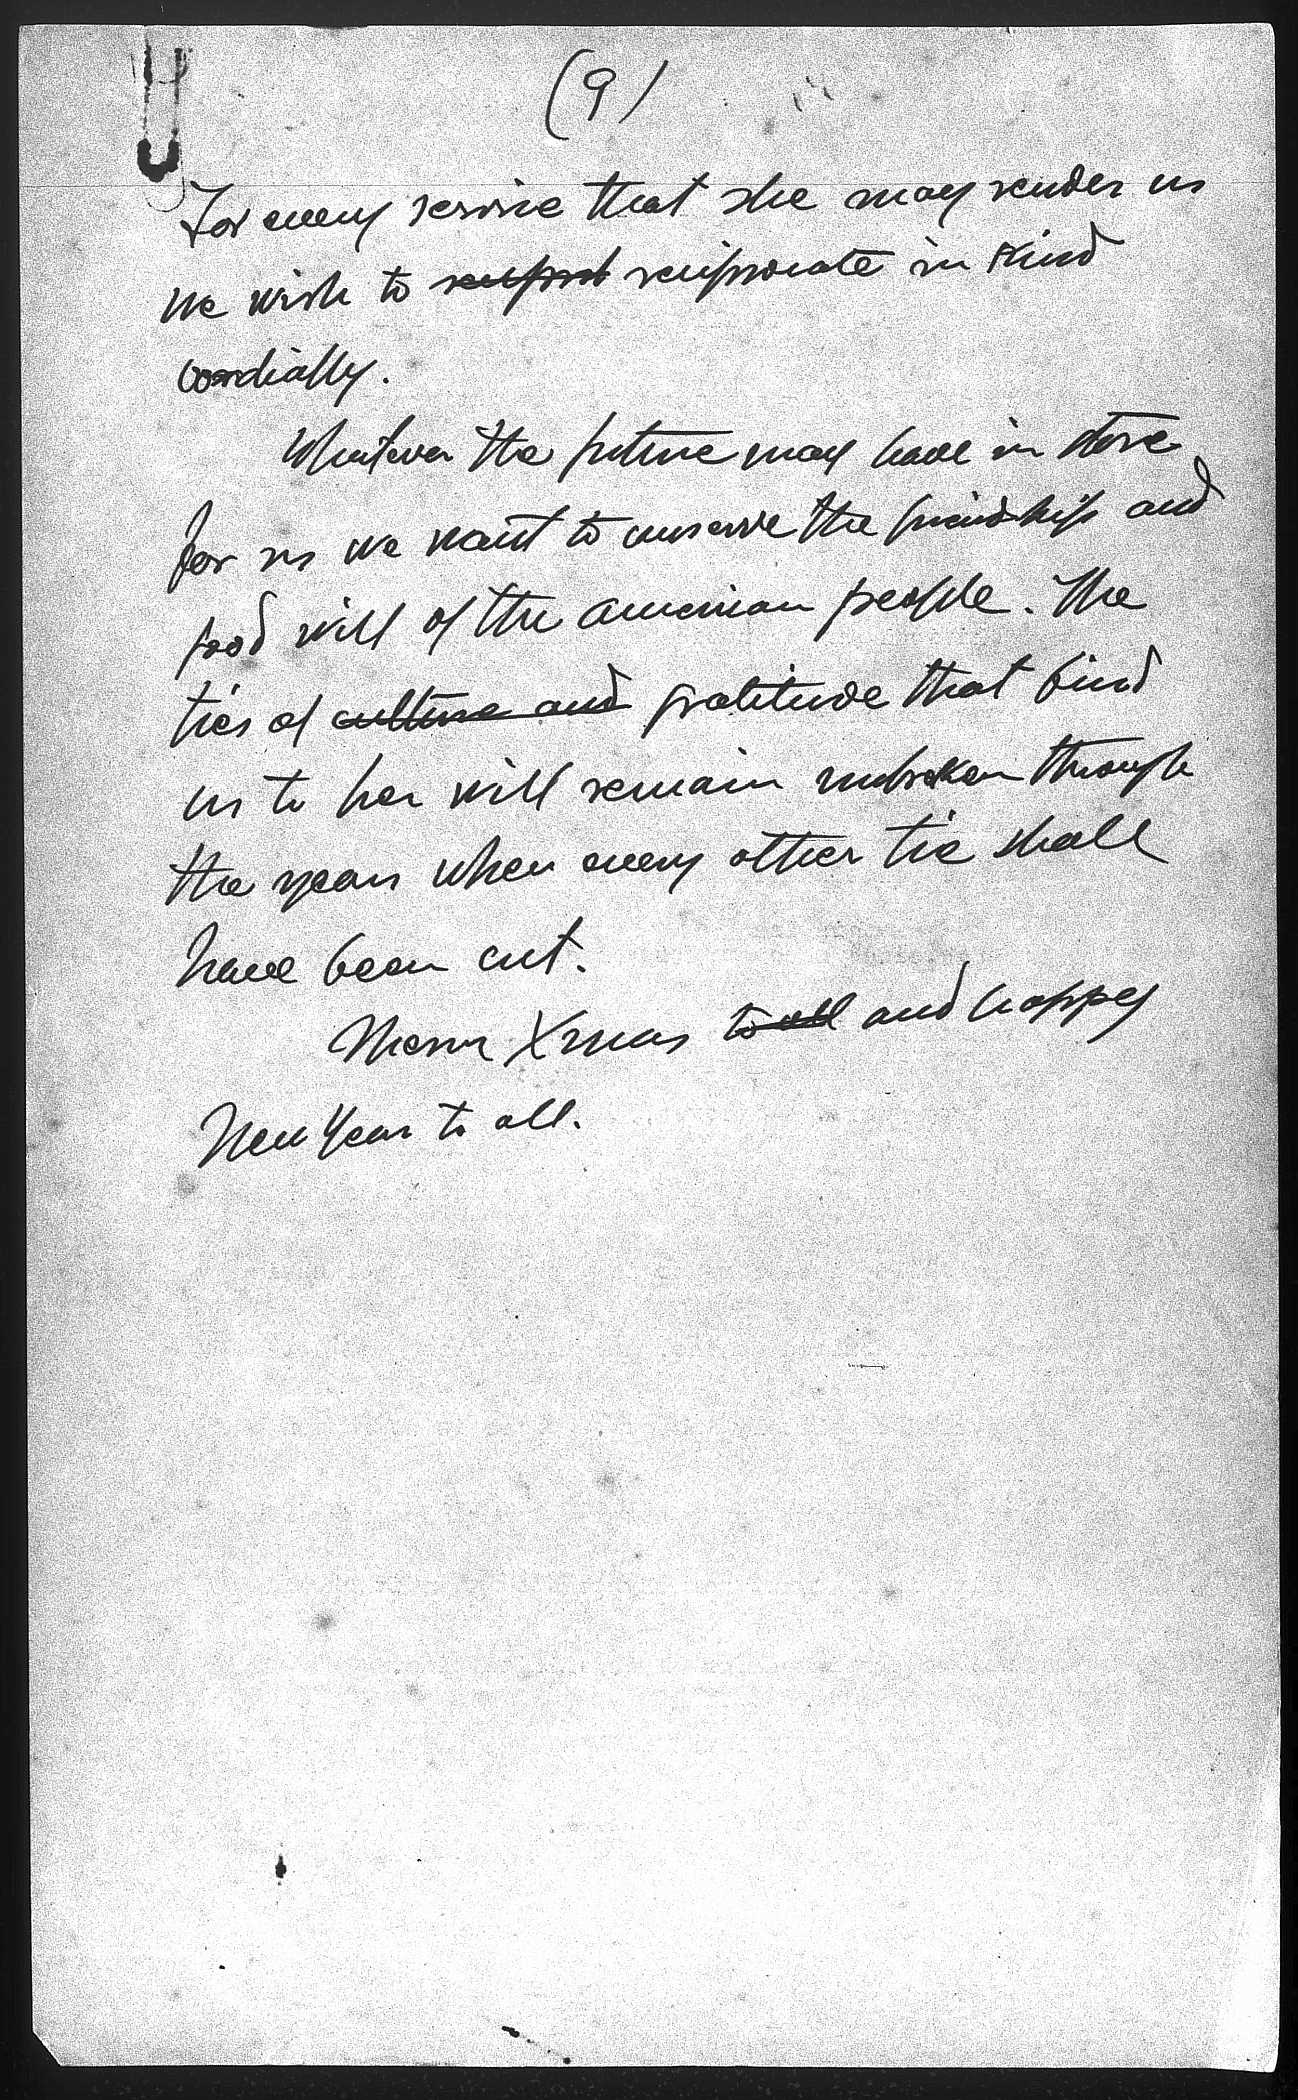 (9)
For every service that she may render us
we wish to reciprocate in kind
cordially.
Whatever the future may have in store
for us we want to conserve the friendship and
good will of the American people. The
ties of culture and gratitude that bind
us to her will remain unbroken through
the years when every other tie shall
have been cut.
Merry Xmas to all and happy
New Year to all.